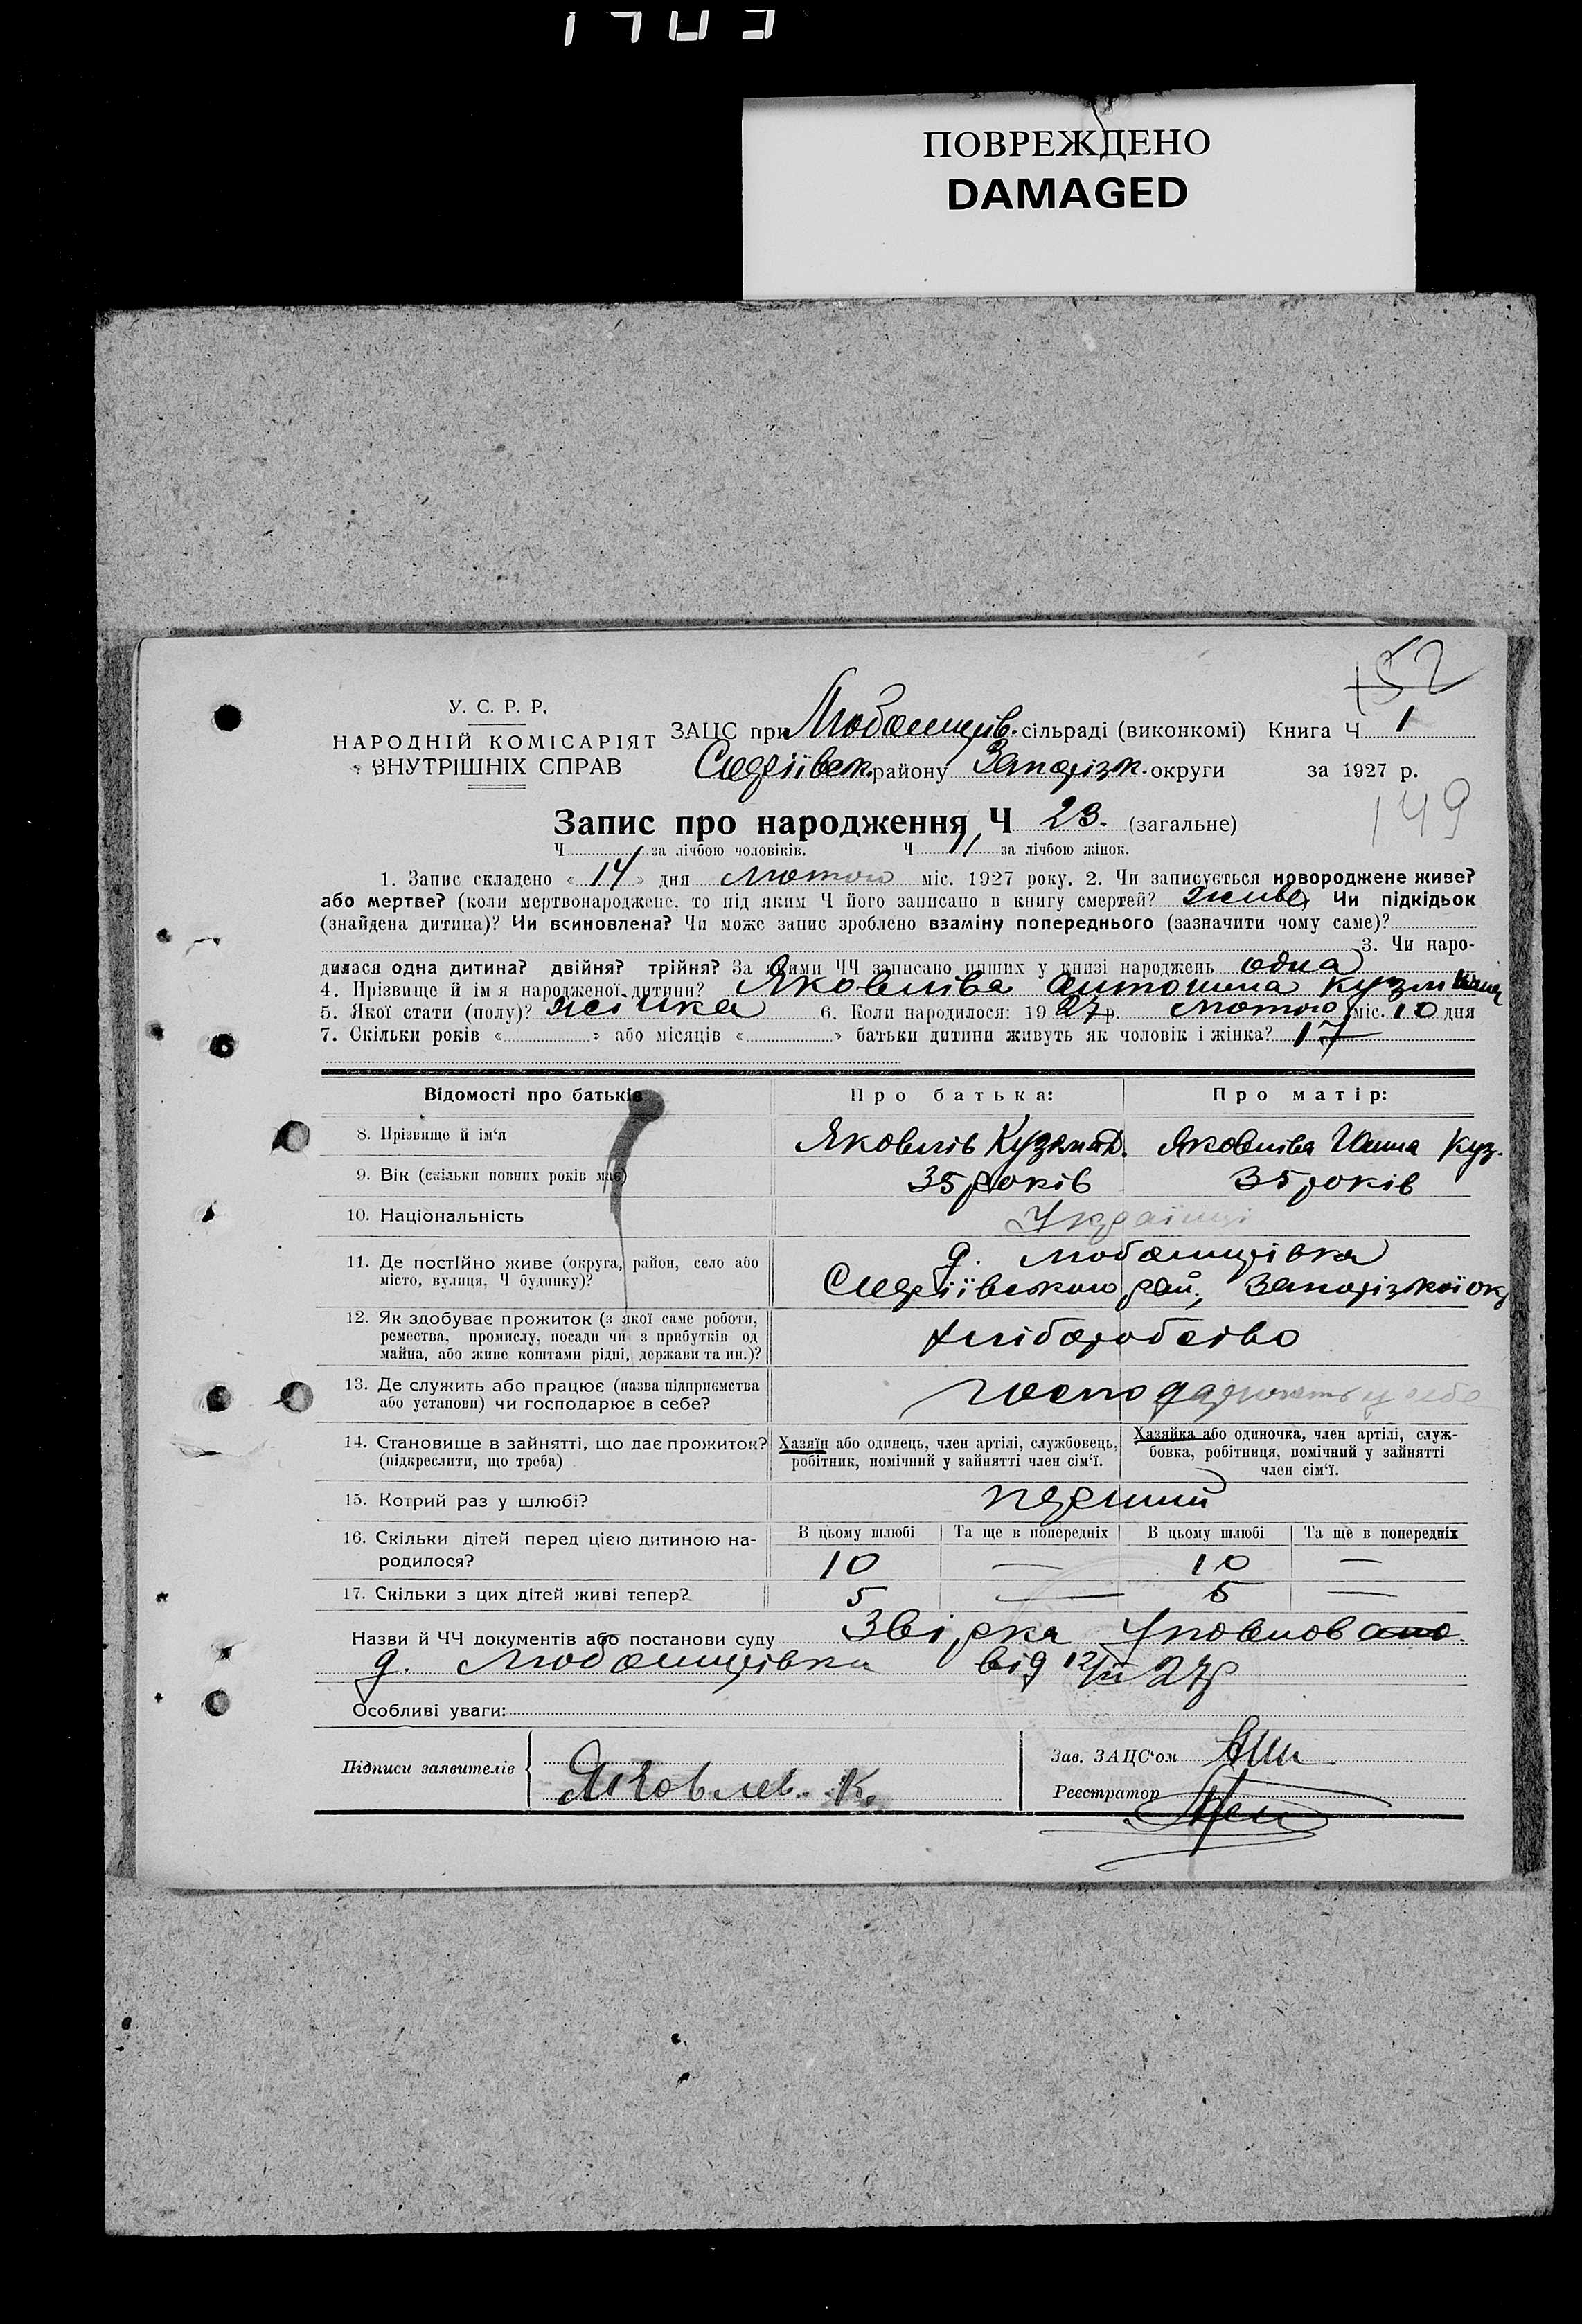 ПОВРЕЖДЕНО
DAMAGED
52
У. С. Р. Р.
НАРОДНІЙ КОМІСАРІЯТ
ВНУТРІШНІХ СПРАВ
ЗАЦС при Любомирів. сільраді (виконкомі) Книга Ч 1
району Запоріз. округи за 1927 р.
149
Запис про народження Ч 23. (загальне)
Ч за лічбою чоловіків. Ч 11 за лічбою жінок.
1. Запис складено « 14 » дня лютого міс. 1927 року. 2. Чи записується новороджене живе?
або мертве? (коли мертвонароджене, то під яким Ч його записано в книгу смертей? живе Чи підкідьок
(знайдена дитина)? Чи всиновлена? Чи може запис зроблено взаміну попереднього (зазначити чому саме)?
3. Чи наро-
дилася одна дитина? двійня? трійня? За якими ЧЧ записано инших у книзі народжень одна
4. Прізвище й ім я народженої дитини? Яковліва Антонина Кузмівна
5. Якої стати (полу)? жінка 6. Коли народилося: 1927 р. лютого міс. 10 дня
7. Скільки років « » або місяців « » батьки дитини живуть як чоловік і жінка? 17
Відомості про батьків Про батька: Про матір:
8. Прізвище й ім'я Яковлів Кузьма Д. Яковліва Ганна Куз.
9. Вік (скільки повних років має) 35 років 35 років
10. Національність Українці
11. Де постійно живе (округа, район, село або
місто, вулиця, Ч будинку)?
рай, Запорізкої окр
12. Як здобуває прожиток (з якої саме роботи,
ремества, промислу, посади чи з прибутків од
майна, або живе коштами рідні, держави та ин.)?
хліборобство
13. Де служить або працює (назва підприємства
або установи) чи господарює в себе?
господарюють у себе
14. Становище в зайнятті, що дає прожиток?
(підкреслити, що треба)
Хазяїн або одинець, член артілі, службовець,
робітник, помічний у зайнятті член сім'ї.
Хазяйка або одиночка, член артілі, служ-
бовка, робітниця, помічний у зайнятті
член сім'ї.
15. Котрий раз у шлюбі? перший
16. Скільки дітей перед цією дитиною на-
родилося?
В цьому шлюбі Та ще в попередніх В цьому шлюбі Та ще в попередніх
10 — 10 —
17. Скільки з цих дітей живі тепер? 5 — 5 —
Назви й ЧЧ документів або постанови суду Звірка
від 12/II 27р
Особливі уваги:
Підписи заявителів Яковлев. К.
Зав. ЗАЦС'ом
Реєстратор